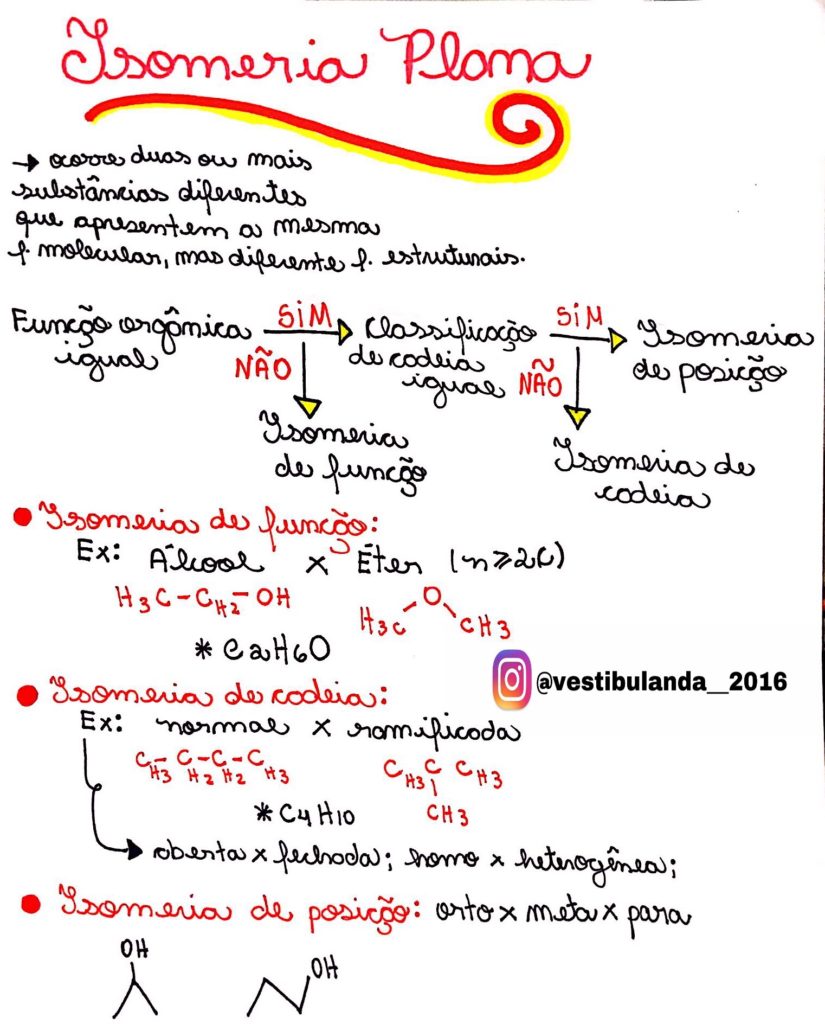 Isomeria Plana
→ ocorre duas ou mais
substâncias diferentes
que apresentem a mesma
f. molecular, mas diferente f. estruturais.
Função orgânica igual
SIM
NÃO
Classificação de cadeia igual
SIM
NÃO
Isomeria de posição
Isomeria de função
Isomeria de cadeia
• Isomeria de função:
Ex: Álcool x Éter (n≥2C)
H3C-CH2-OH
O
H3C CH3
* C2H6O
@vestibulanda__2016
• Isomeria de cadeia:
Ex: normal x ramificada
CH3-CH2-CH2-CH3
CH3 C CH3
CH3
* C4H10
aberta x fechada; homo x heterogênea;
• Isomeria de posição: orto x meta x para
OH
OH